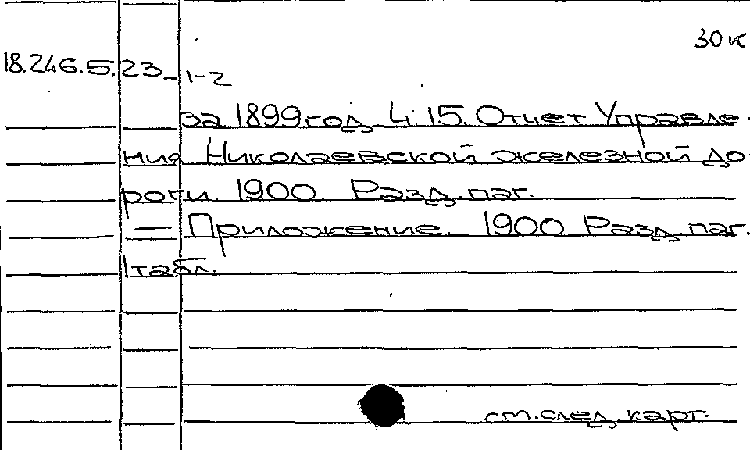 30 к
18.246.5.23_1-2
за 1899 год. Ч. 15. Отчет Управле-
ния Николаевской железной до-
роги. 1900. Разд. паг.
— Приложение. 1900. Разд. паг.
1 табл.
см. след. карт.